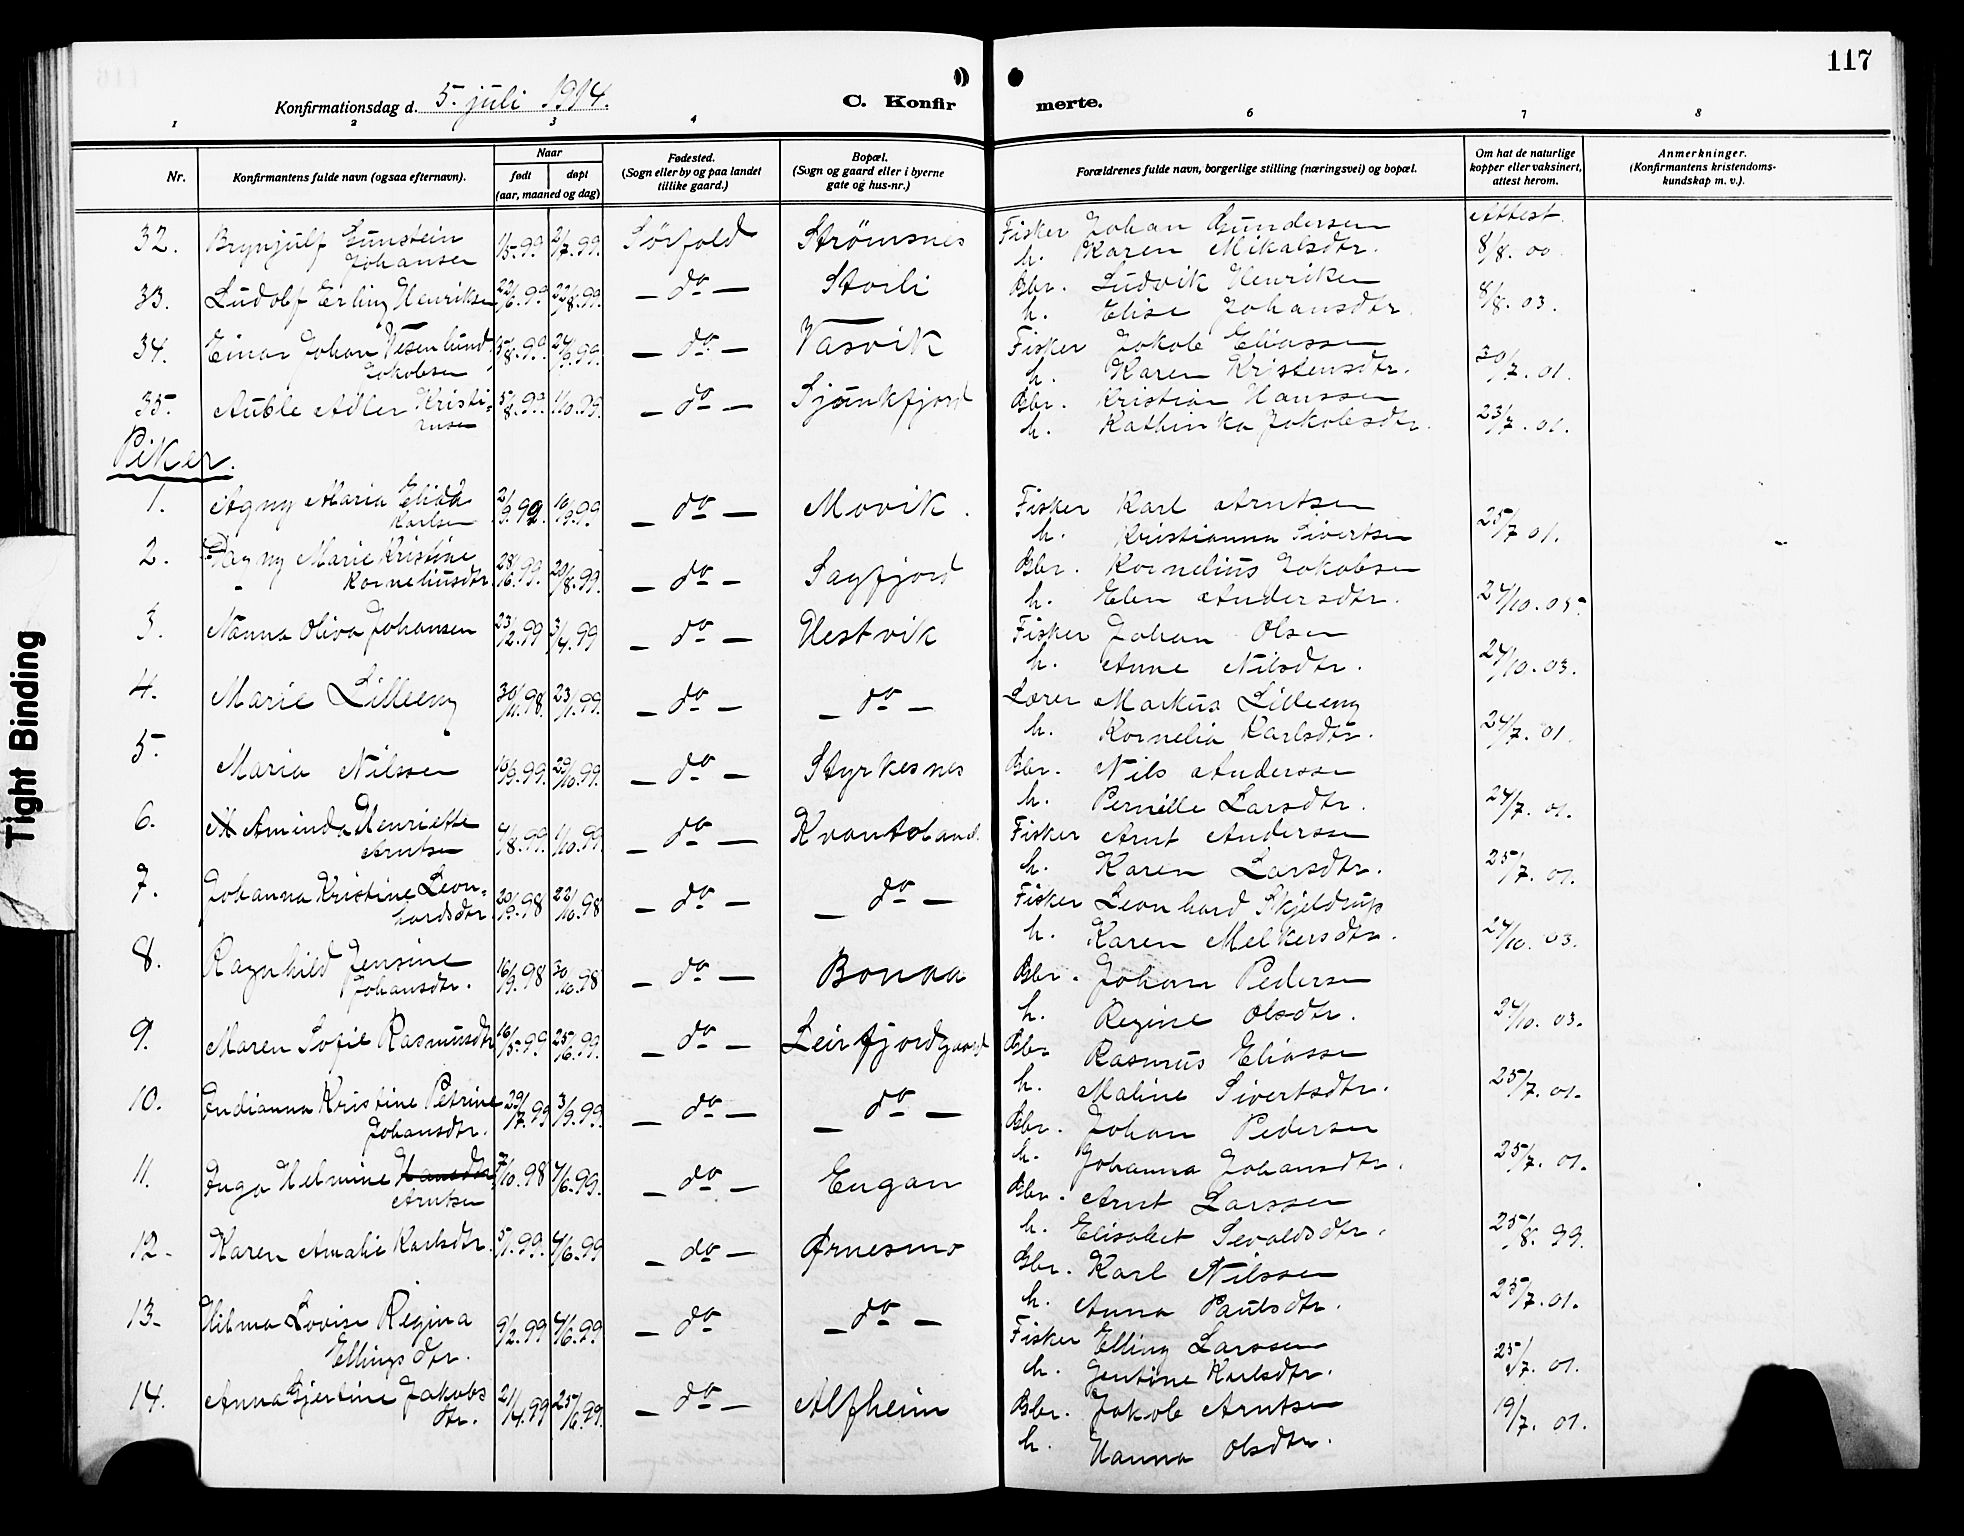 117
Konfirmationsdag d. 5. juli 1914.
C. Konfirmerte.
1 2 3 4 6 7 8
Nr.
Konfirmantens fulde navn (ogsaa efternavn).
Naar
født døpt
(aar, maaned og dag)
Fødested.
(Sogn eller by og paa landet
tillike gaard.)
Bopæl.
(Sogn og gaard eller i byerne
gate og hus-nr.)
Forældrenes fulde navn, borgerlige stilling (næringsvei) og bopæl.
Om hat de naturlige
kopper eller vaksinert,
attest herom.
Anmerkninger.
(Konfirmantens kristendoms-
kundskap m. v.).
32. Brynjulf Eunstein Johansen 1/5.99 2/7.99 Sørfold Strømsnes Fisker Johan Gundersen Attest.
h. Karen Mikalsdtr. 8/8.00
33. Ludolf Erling Henriksen 22/6.99 22/8.99 - do - Storli Gbr. Ludvik Henriksen
h. Elise Johansdtr. 8/8.03.
34. Einar Johan Vesenlund Jakobsen 5/8.99 24/9.99 - do - Vasvik Fisker Jakob Eliassen
h. Karen Kristensdtr. 30/7.01.
35. Auble Adler Kristiansen 5/8.99 - do - Sjunkfjord Gbr. Kristian Hanssen
h. Kathinka Jakobsdtr. 23/7.01.
Piker.
1. Agny Maria Elida Karlsen 2/9.99. 10/9.99 - do - Movik. Fisker Karl Arntsen
h. Kristianna Sivertsen 25/7 01.
2. Dagny Marie Kristine Korneliusdtr. 28/6.99. 20/8.99. - do - Sagfjord Gbr. Kornelius Jakobsen
h. Elen Andersdtr. 24/10.05.
3. Nanna Oliva Johansen 23/2.99 3/4.99 - do - Hestvik Fisker Johan Olsen
h. Anne Nilsdtr. 24/10.03.
4. Marie Lilleeng 30/11.98. 23/1.99. - do - - do - Lærer Markus Lilleeng
h. Kornelia Karlsdtr. 24/7.01.
5. Maria Nilssen 16/9.99. 29/10.99. - do - Styrkesnes Gbr. Nils Anderssen
h. Pernille Larsdtr. 24/7.01.
6. Aminda Henriette Arntsen 4/8.99. 1/10.99. - do - Kvantoland. Fisker Arnt Andersen
h. Karen Larsdtr. 25/7.01.
7. Johanna Kristine Leonhardsdtr. 20/9.98 22/10.98 - do - - do - Fisker Leonhard Skjeldrup
h. Karen Melkersdtr. 24/10.03.
8. Ragnhild Jensine Johansdtr. 16/9.98 30/10.98 - do - Bonaa Gbr. Johan Pedersen
h. Regine Olsdtr. 24/10.03.
9. Maren Sofie Rasmusdtr 16/5.99 25/6.99. - do - Leirfjordgaard Gbr Rasmus Eliassen
h. Maline Sivertsdtr. 25/7.01.
10. Endianna Kristine Petrine Johansdtr. 29/7.99 3/9.99. - do - - do - Gbr. Johan Pedersen
h. Johanna Johansdtr. 25/7.01.
11. Inga Helmine Hansdtr Arntsen 7/10.98 4/6.99. - do - Engan Gbr. Arnt Larssen
h. Elisabet Sevaldsdtr. 25/8.99.
12. Karen Amalie Karlsdtr. 5/1.99. 4/6.99 - do - Ørnesmo Gbr. Karl Nilssen
h. Anna Paulsdtr. 25/7.01.
13. Hilma Lovise Regina Ellingsdtr. 9/2.99 4/6.99 - do - do - Fisker Elling Larssen
h. Jentine Karlsdtr. 25/7.01.
14. Anna Gjertine Jakobsdtr. 21/4.99 25/6.99. - do - Alfheim Gbr. Jakob Arntsen
h. Hanna Olsdtr. 19/7.01.
Tight Binding